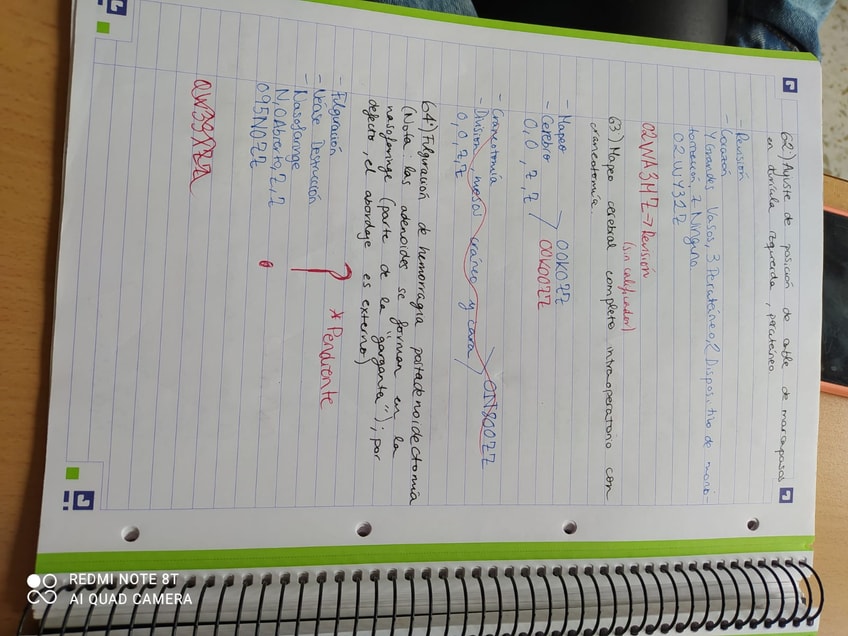 62) Ajuste de posición de cable de marcapasos
en aurícula izquierda, percutáneo
- Revisión
- Corazón
Y Grandes Vasos, 3 Percutáneo, 2 Dispositivo de moni-
torización, Z Ninguno
02WY32Z
02WA3MZ → Revisión
(sin calificador)
63) Mapeo cerebral completo intraoperatorio con
craneotomía.
- Mapeo
- Cerebro
0, 0, Z, Z
00K0ZZ
00K00ZZ
- Craneotomía
- División, huesos cráneo y cara
0, 0, Z, Z
0N800ZZ
64) Fulguración de hemorragia postadenoidectomía
(Nota: las adenoides se forman en la
nasofaringe (parte de la "garganta"); por
defecto, el abordaje es externo)
- Fulguración
- Véase Destrucción
- Nasofaringe
N, 0 Abierto, Z, Z
095N0ZZ
* Pendiente
REDMI NOTE 8T
AI QUAD CAMERA